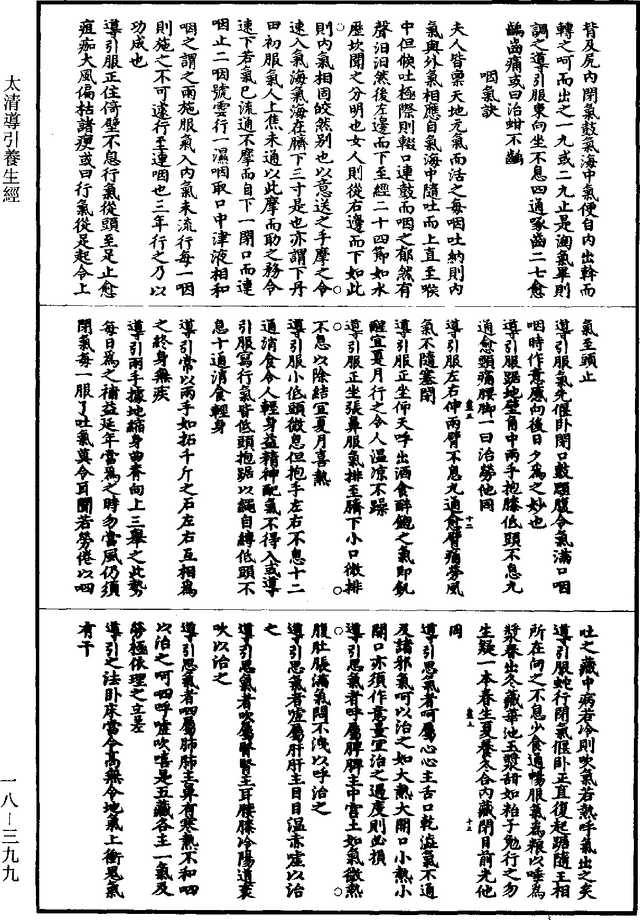 太清導引養生經
一八-三九九
背及尻內閉氣鼓氣海中氣使自內出斡而
轉之呵而出之一九或二九止是淘氣畢則
調之導引服東向坐不息四通啄齒二七愈
齲齒痛或曰治蚶不齲
咽氣訣
夫人皆稟天地元氣而活之每咽吐納則內
氣與外氣相應自氣海中隨吐而上直至喉
中但候吐極際則輟口連鼓而咽之郁然有
聲汩汩然後左邊而下至經二十四節如水
歷坎聞之分明也女人則從右邊而下如此
則內氣相固皎然別也以意送之手摩之令
速入氣海氣海在臍下三寸是也亦謂下丹
田初服氣人上焦未通以此摩而助之務令
速下若氣已流通不摩而自下一閉口而連
咽止二咽號雲行一濕咽取口中津液相和
咽之謂之雨施服氣入內氣未流行每一咽
則施之不可遽行至連咽也三年行之乃以
功成也
導引服正住倚壁不息行氣從頭至足止愈
疽痂大風偏枯諸痹或曰行氣從足起令上
氣至頭止
導引服氣先偃卧閉口鼓腮腹令氣滿口咽
咽時作意應向後日夕為之妙也
導引服踞地壁角中兩手抱膝低頭不息九
通愈頸痛腰脚一曰治勞他同
導引服左右伸兩臂不息九通愈臂痛勞風
氣不隨塞閉
導引服正坐仰天呼出酒食醉飽之氣即飢
醒宜夏月行之令人溫涼不躁
導引服正坐張鼻服氣排至臍下小口微排
不息以除結宜夏月喜熱
導引服小低頭微息但抱手左右不息十二
通消食令人輕身益精神配氣不得入或導
引服寫行氣皆低頭抱踞以繩自縛低頭不
息十通消食輕身
導引常以兩手如拓千斤之石左右互相為
之終身無疾
導引兩手據地縮身曲脊向上三舉之此勢
每日為之補益延年當為之時勿當風仍須
閉氣每一服了吐氣莫令耳聞若勞倦以咽
吐之藏中病若冷則吹氣若熱呼氣出之矣
導引服蛇行閉氣偃卧正直復起踞隨王相
所在向之不息少食通暢服氣為糧以唾為
漿春出冬藏華池玉漿甜如粘子勉行之勿
生疑一本春生夏養冬合內藏閉目前光他
同
導引思氣者呵屬心心主舌口乾澁氣不通
及諸邪氣呵以治之如大熱大開口小熱小
開口亦須作意量宜治之過度則必損
導引思氣者呼屬脾脾主中宮土如氣微熱
腹肚脹滿氣悶不洩以呼治之
導引思氣者噓屬肝肝主目目溫赤噓以治
之
導引思氣者吹屬腎腎主耳腰膝冷陽道衰
吹以治之
導引思氣者呬屬肺肺主鼻有寒熱不和呬
以治之呵呬呼噓吹嘻是五藏各主一氣及
勞極依理之立差
導引之法卧床當令高無令地氣上衝鬼氣
有干